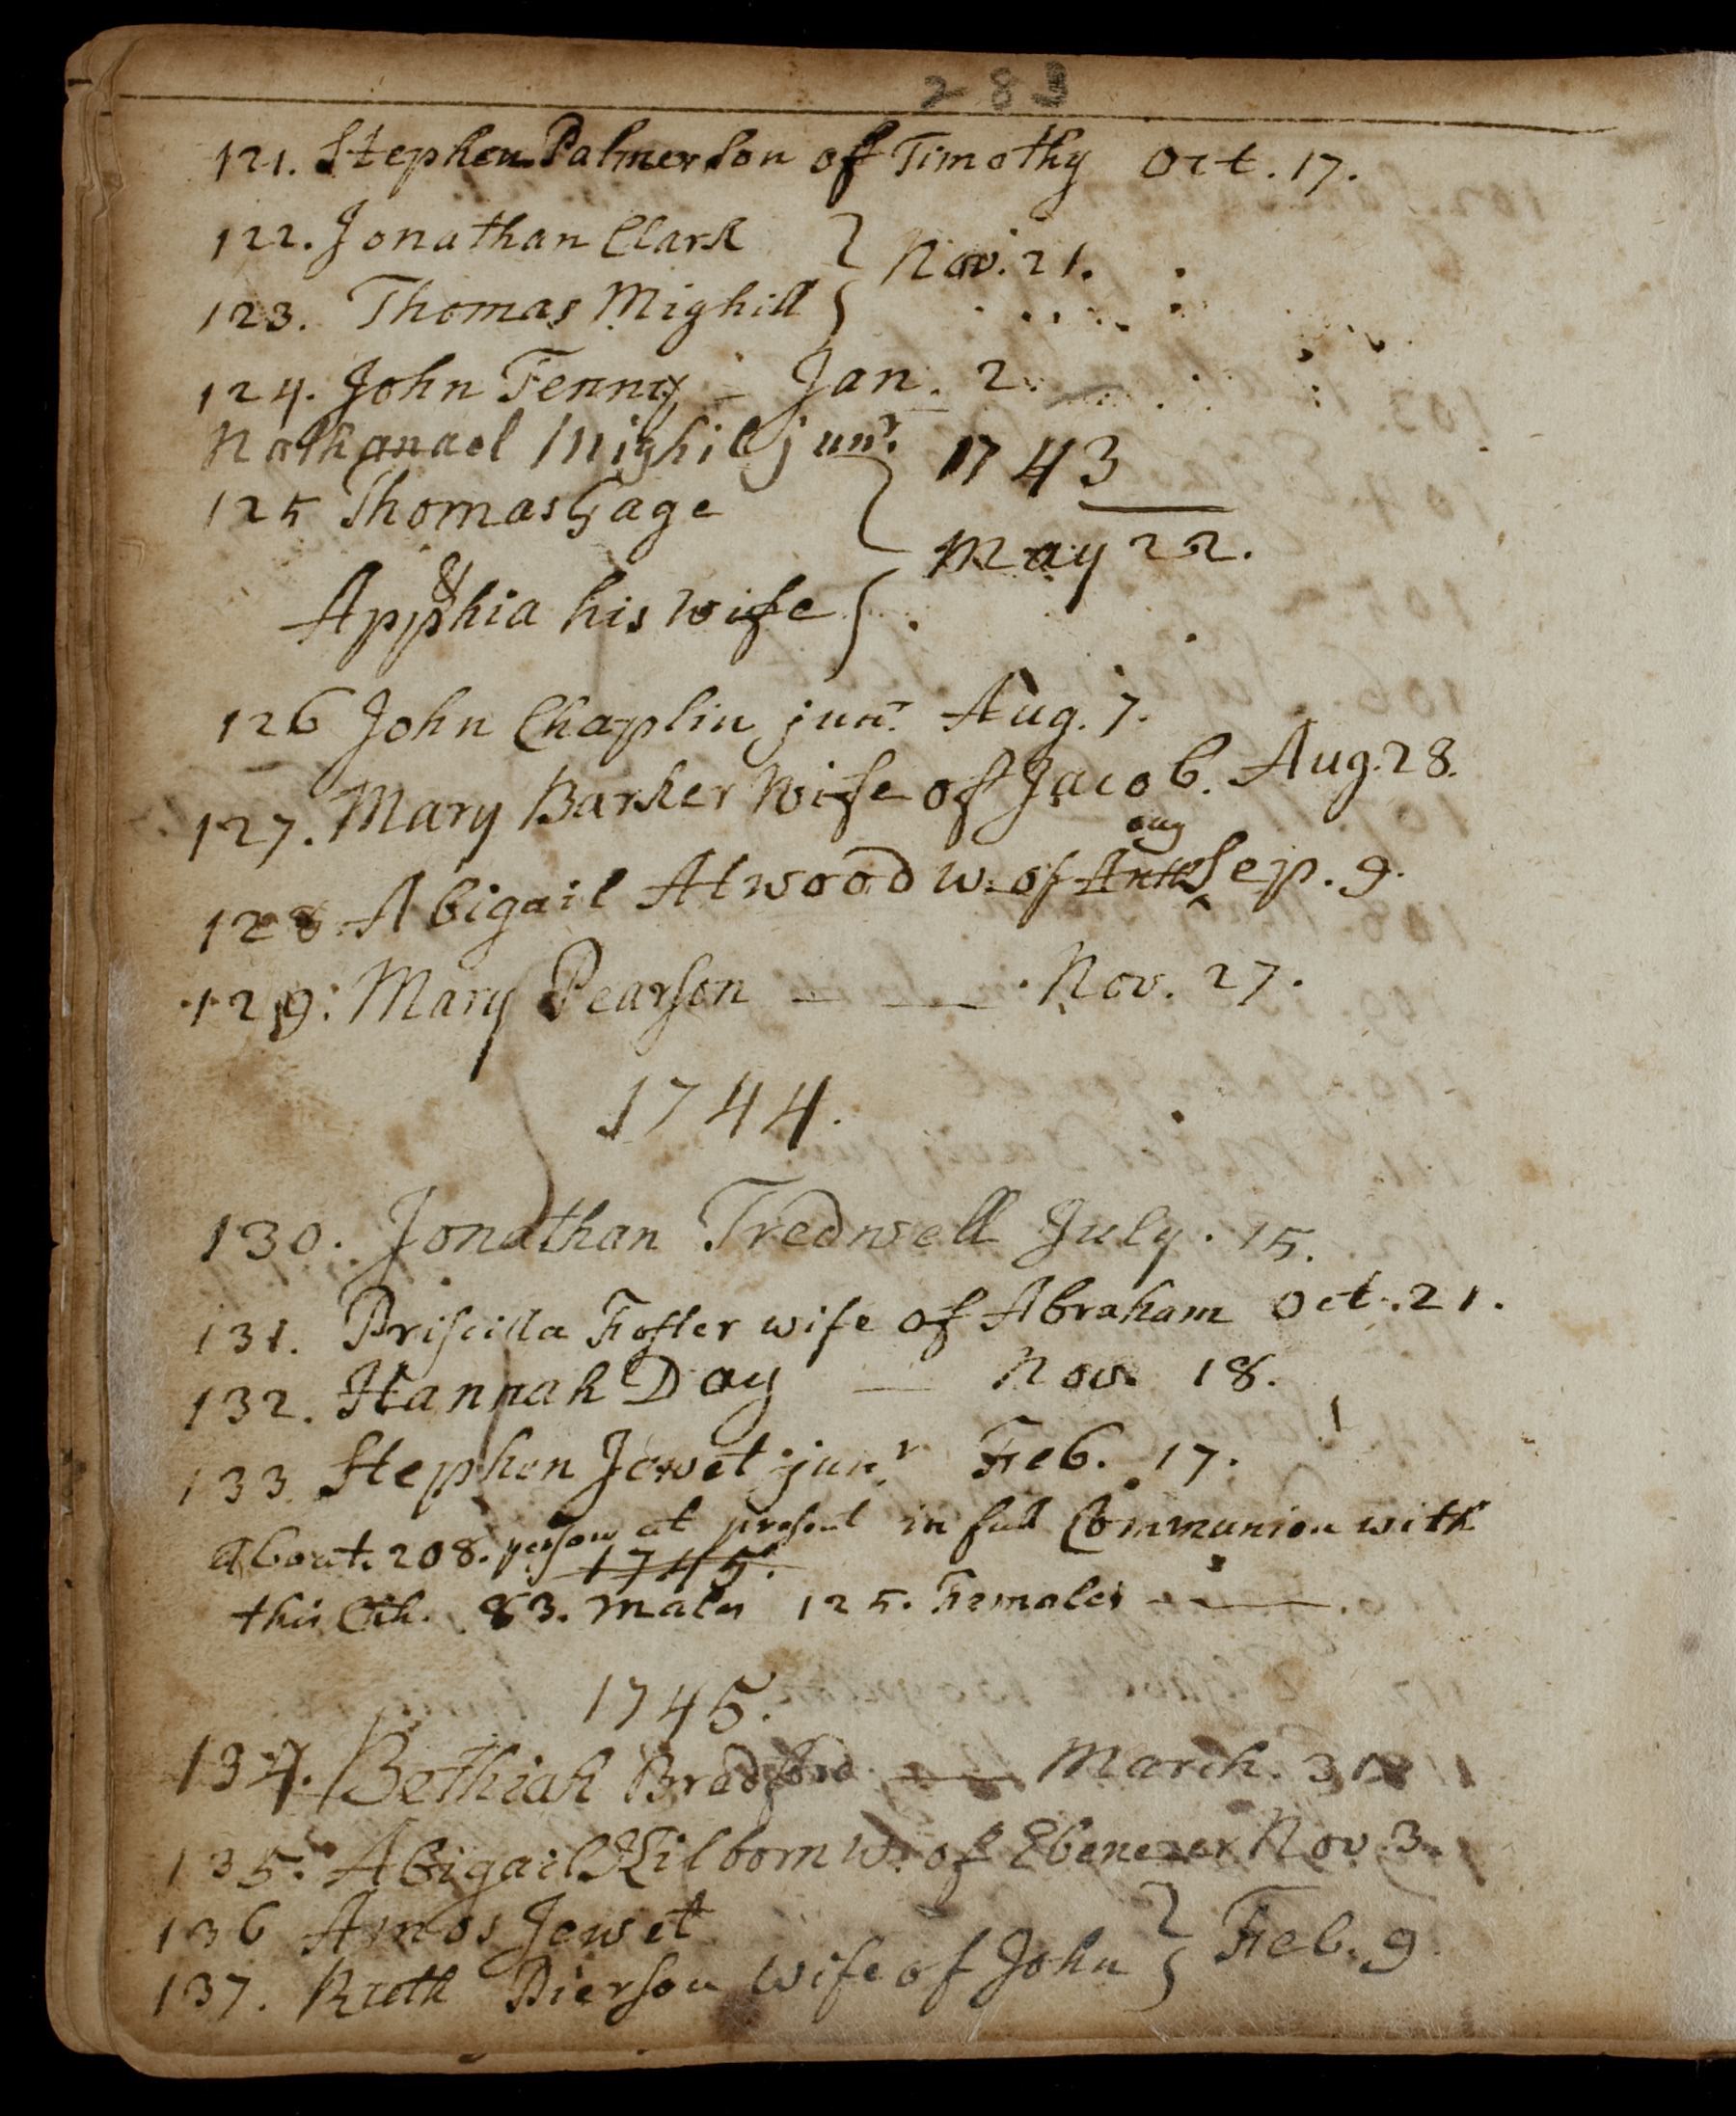 283
121. Stephen Palmer Son of Timothy Oct. 17.
122. Jonathan Clark
Nov. 21.
123. Thomas Mighill
124. John Tenny - Jan. 2.
Nathanael Mighil junr.
1743
125 Thomas Gage
May 22.
&
Apphia his wife
126 John Chaplin junr. Aug. 7.
127. Mary Barker Wife of Jacob. Aug. 28.
128. Abigail Atwood w. of Sep. 9.
129. Mary Pearson — — Nov. 27.
1744.
130. Jonathan Tredwell July. 15.
131. Priscilla Foster wife of Abraham Oct. 21.
132. Hannah Day — Nov. 18.
133. Stephen Jewet junr. Feb. 17.
about. 208. persons at present in full Communion with
1745.
this Ch. 83. males 125. Females —
1745.
134. Bethiah Bradford — March. 31
135. Abigail Kilborn w. of Ebenezer Nov. 3.
136 Amos Jewet
Feb. 9.
137. Ruth Pierson wife of John